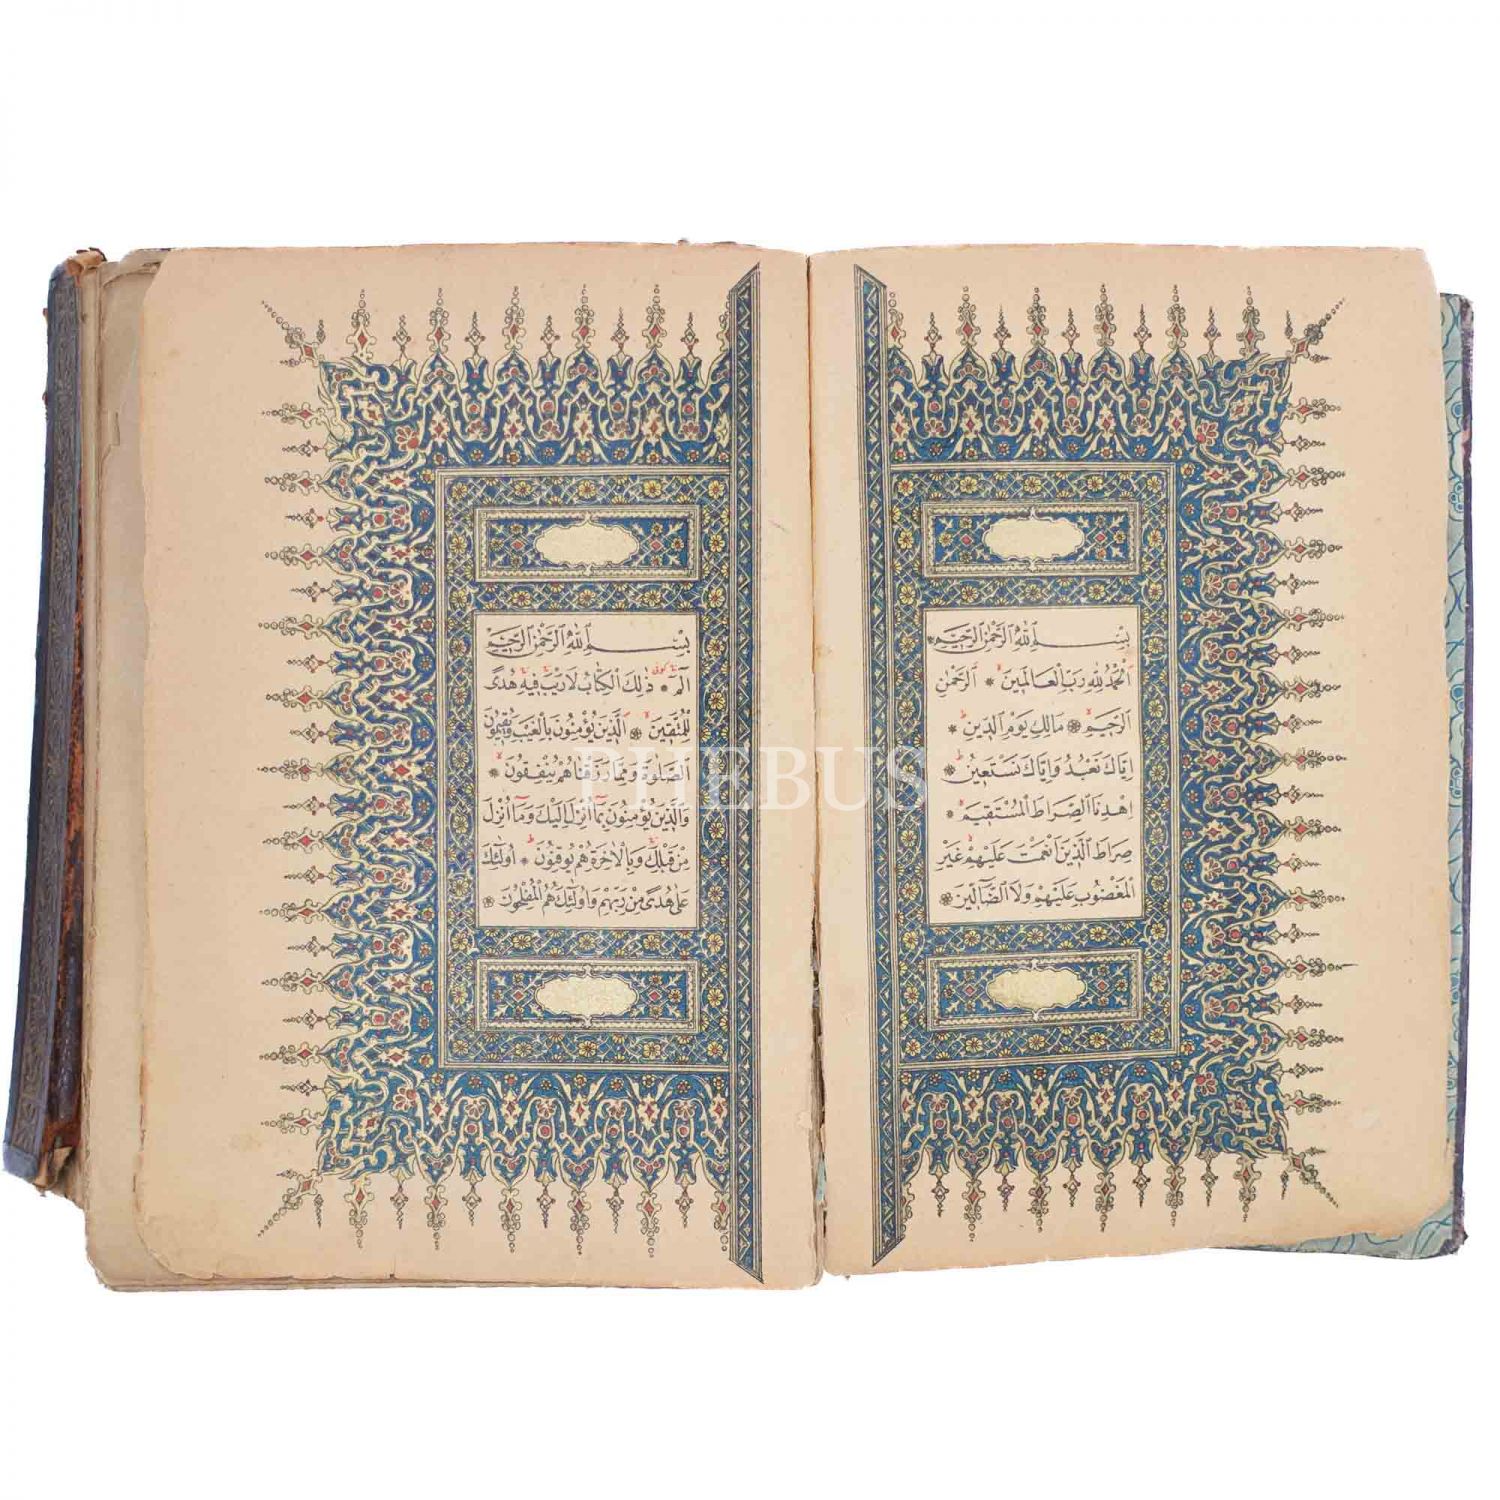 بِسْمِ اللهِ الرَّحْمٰنِ الرَّحِيمِ
اَلْحَمْدُ لِلّٰهِ رَبِّ الْعَالَمِينَ الرَّحْمٰنِ
الرَّحِيمِ مَالِكِ يَوْمِ الدِّينِ
اِيَّاكَ نَعْبُدُ وَاِيَّاكَ نَسْتَعِينُ
اِهْدِنَا الصِّرَاطَ الْمُسْتَقِيمَ
صِرَاطَ الَّذِينَ اَنْعَمْتَ عَلَيْهِمْ غَيْرِ
الْمَغْضُوبِ عَلَيْهِمْ وَلَا الضَّالِّينَ
بِسْمِ اللهِ الرَّحْمٰنِ الرَّحِيمِ
الٓمٓ ذٰلِكَ الْكِتَابُ لَا رَيْبَ فِيهِ هُدًى
لِلْمُتَّقِينَ اَلَّذِينَ يُؤْمِنُونَ بِالْغَيْبِ وَيُقِيمُونَ
الصَّلٰوةَ وَمِمَّا رَزَقْنَاهُمْ يُنْفِقُونَ
وَالَّذِينَ يُؤْمِنُونَ بِمَا اُنْزِلَ اِلَيْكَ وَمَا اُنْزِلَ
مِنْ قَبْلِكَ وَبِالْاٰخِرَةِ هُمْ يُوقِنُونَ اُولٰئِكَ
عَلٰى هُدًى مِنْ رَبِّهِمْ وَاُولٰئِكَ هُمُ الْمُفْلِحُونَ
PHEBUS